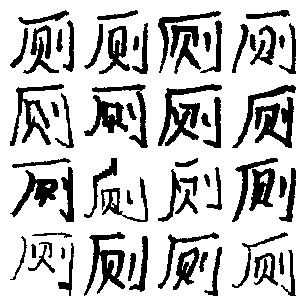 厕厕厕厕
厕厕厕厕
厕厕厕厕
厕厕厕厕